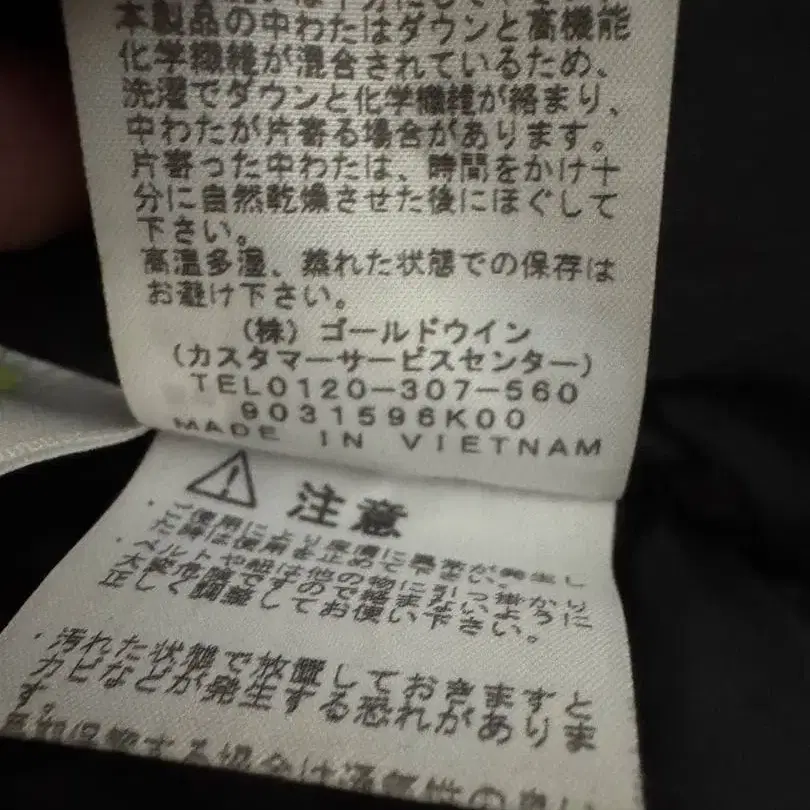 本製品の中わたはダウンと高機能
化学繊維が混合されているため、
洗濯でダウンと化学繊維が絡まり、
中わたが片寄る場合があります。
片寄った中わたは、時間をかけ十
分に自然乾燥させた後にほぐして
下さい。
高温多湿、蒸れた状態での保存は
お避け下さい。
(株) ゴールドウイン
(カスタマーサービスセンター)
TEL0120-307-560
9031596K00
MADE IN VIETNAM
注意
・ご使用により皮膚に異常が発生し
た時は使用を止めて下さい。
・ベルトや紐は他の物に引っ掛かり
大変危険ですので絡まないように
正しく調整してお使い下さい。
・汚れた状態で放置しておきますと
カビなどが発生する恐れがありま
す。